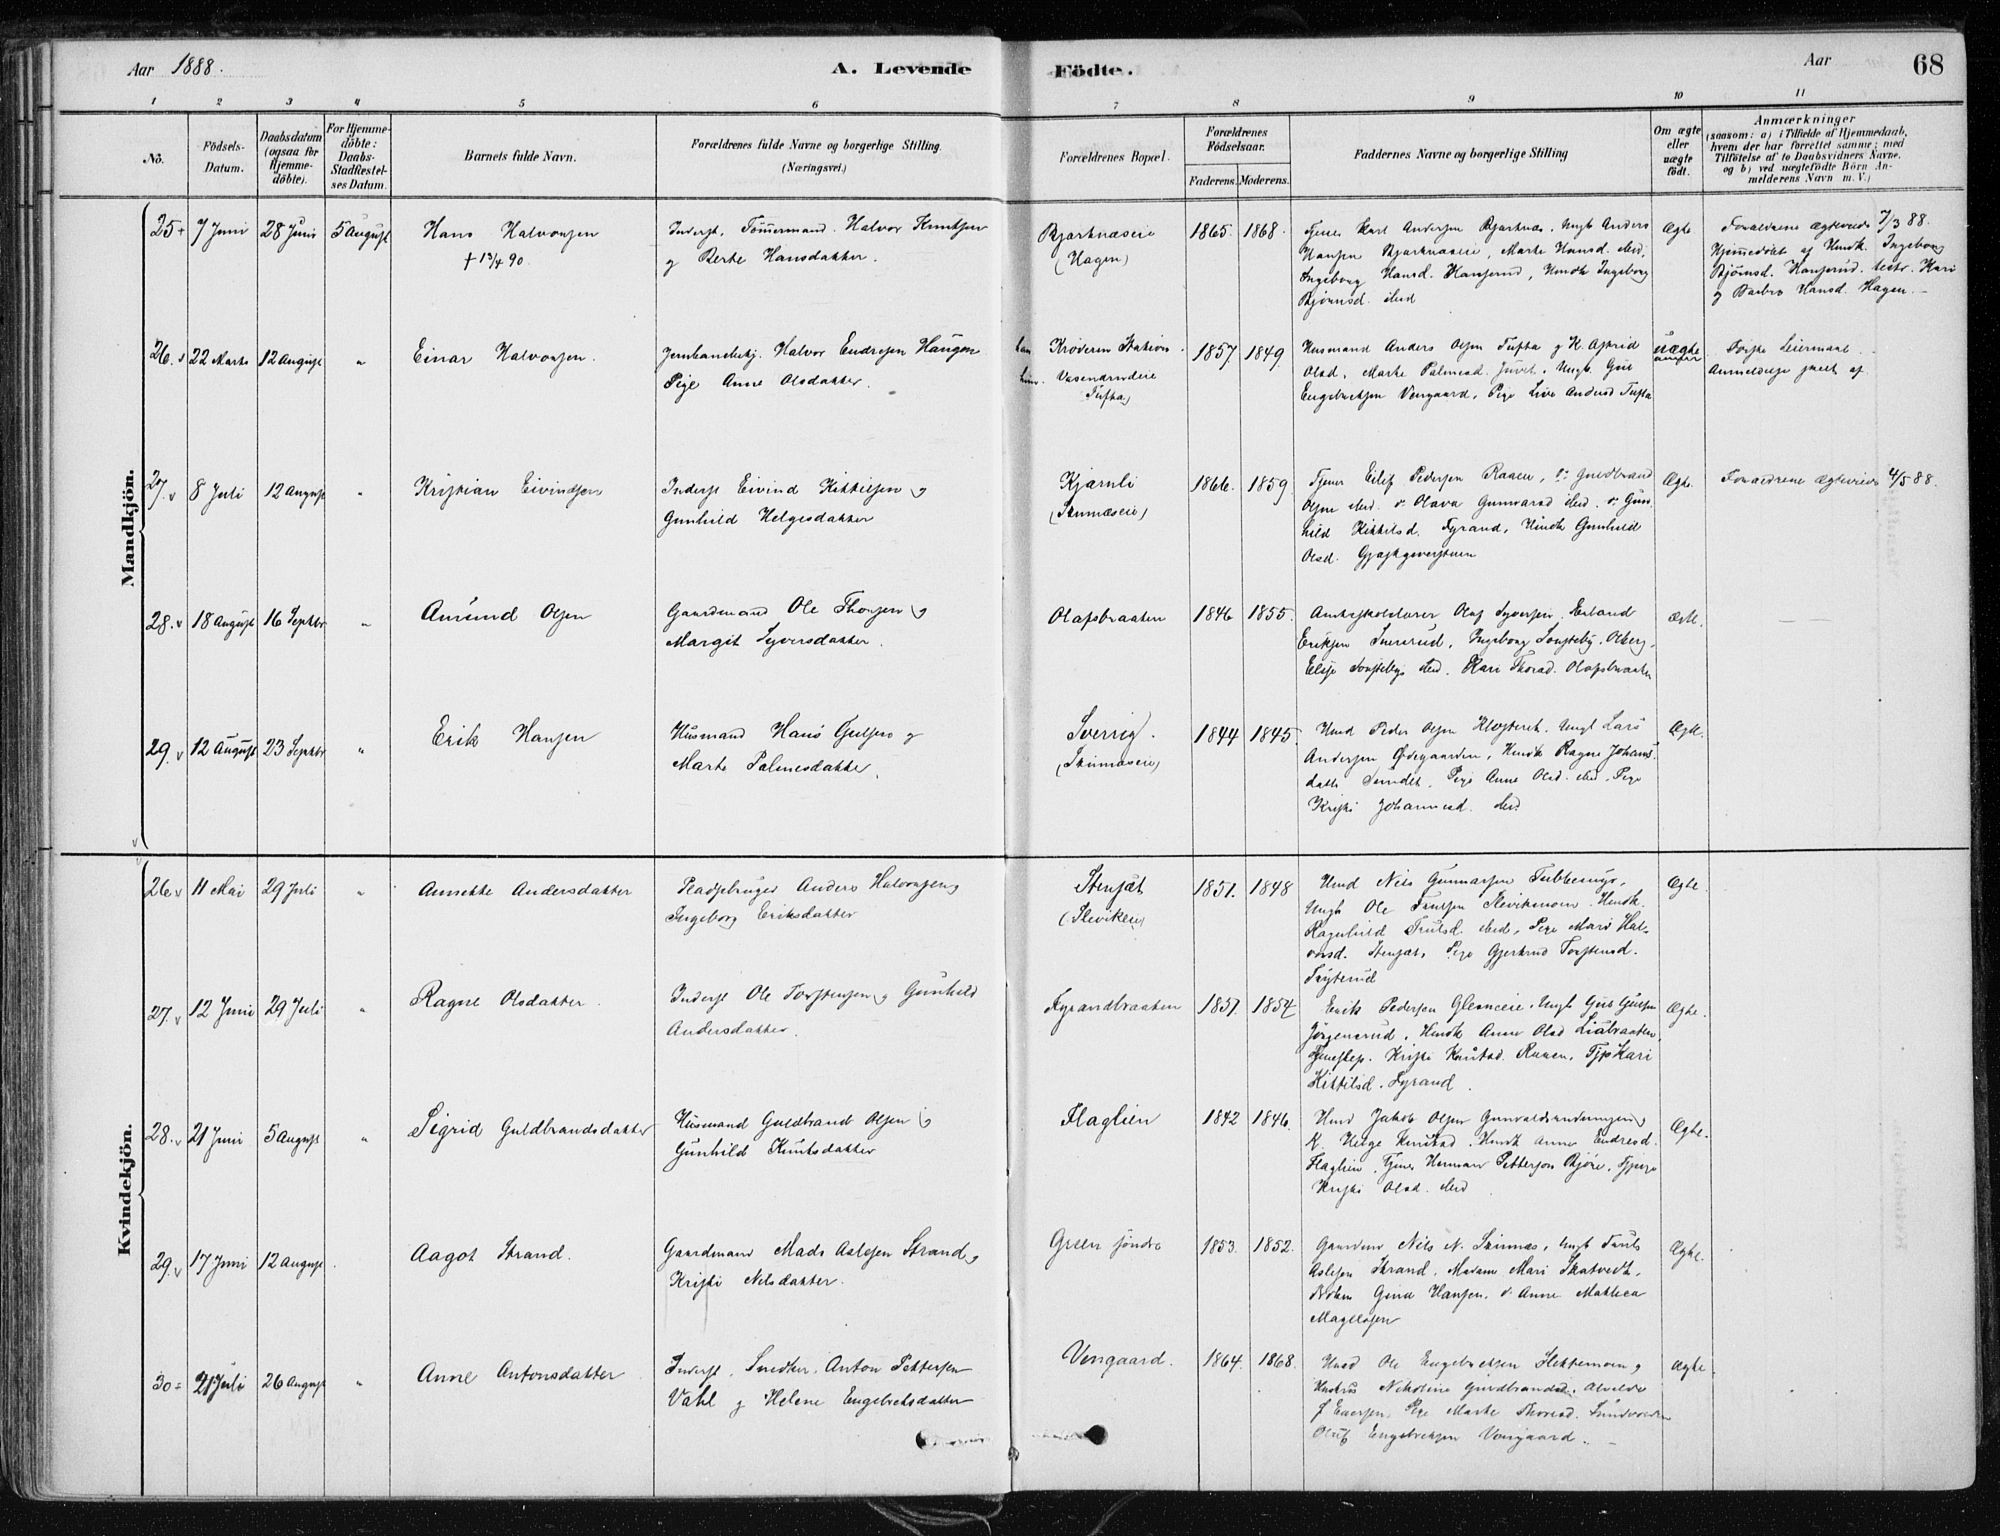 Aar 1888.
A. Levende Födte.
Aar
68
1 2 3 4 5 6 7 8 9 10 11
No.
Födsels-Datum.
Daabsdatum (ogsaa for Hjemme-döbte).
For Hjemme-döbte: Daabs-Stadfæstel-ses Datum.
Barnets fulde Navn.
Forældrenes fulde Navne og borgerlige Stilling. (Næringsvei.)
Forældrenes Bopæl.
Forældrenes Födselsaar.
Faderens. Moderens.
Faddernes Navne og borgerlige Stilling
Om ægte eller uægte födt.
Anmærkninger
(saasom: a) i Tilfælde af Hjemmedaab,
hvem der har forrettet samme; med
Tilföielse af to Daabsvidners Navne.
og b) ved uægtefödte Börn An-
melderens Navn m. V.)
Mandkjön.
25 7 Juni 28 Juni 5 August Hans Halvorsen
† 13/4 90.
Inderst, Tömmermand Halvor Knutsen
og Berte Hansdatter.
Bjørknæseie
(Hagen)
1865. 1868.
Tjener Karl Andersen Bjørknæs. Ungk Anders
Hansen Bjørknæseie, Marte Hansd. ibid,
Ingeborg Hansd. Hansrud, Husk Ingeborg
Bjørnsd. ibid
Ægte
Forældrene Ægteviede 7/3 88.
Hjemmedöbt af Husk. Ingeborg
Bjørnsd. Hansrud. testr. Kari
og Barbro Hansd. Hagen.
26. 22 Marts 12 August " Einar Halvorsen.
Jernbanebetj. Halvor Endresen Haugen
Pige Anne Olsdatter.
han Krøderen Station.
hun. Vasendrudeie
Tufta)
1857 1849.
Husmand Anders Olsen Tufta og K. Astrid
Olsd, Marte Palmesd. Juvet, Ungk. Gul
Engebretsen Vengaard, Pige Live Andersd Tufta
uægte
Første Leiermaal
Anmeldelse skeet af
27. 8 Juli 12 August " Kristian Eivindsen
Inderst Eivind Kittilsen og
Gunhild Helgesdatter
Kjærnli
(Skinnæseie)
1866. 1859
Tjener Eilef Pedersen Raaen, Guldbrand
Olsen ibid. Olava Gunnarsd ibid. Gun-
hild Kittilsd. Fyrand, Husk Gunhild
Olsd.
Ægte.
Forældrene Ægteviede 4/5 88.
28. 18 August 16 Septbr " Amund Olsen
Gaardmand Ole Thorsen og
Margit Syversdatter.
Olafsbraaten
1846 1855.
Amtsskolelærer Olaf Syversen. Erland
Eriksen Snererud, Ingeborg Sønsteby, Olberg,
Elise Sønsteby ibid. Kari Thorsd. Olafsbraaten
ægte.
29. 12 August 23 Septbr " Erik Hansen
Husmand Hans Gulsen og
Marte Palmesdatter.
Sverrig.
(Skinnæseie)
1844 1845.
Husmd Peder Olsen Klosteret. Ungk Lars
Andersen Ødegaarden, Husk Ragne Johans-
datter Sundet, Pige Anne Olsd. ibid, Pige
Kristi Johannesd. ibid.
Ægte.
Kvindekjön.
26 11 Mai 29 Juli " Annette Andersdatter
Pladsebruger Anders Halvorsen og
Ingeborg Eriksdatter
Stensæt
(Sleviken)
1851. 1848
Husmd Nils Gunnarsen Tubberud,
Ungk Ole Trulsen Slevikmoen. Husk.
Ragnhild Trulsd. ibid, Pige Mari Hal-
vorsd. Stensæt, Pige Gjertrud Torstensd.
Fryterud
Ægte.
27. 12 Juni 29 Juli " Ragne Olsdatter.
Inderst Ole Torstensen og Gunhild
Andersdatter.
Fyrandbraaten
1851. 1854
Enkem Pedersen Glesneeie. Ungk Guls Gulsen
Jörgensrud, Husk Anne Olsd Liabraaten,
Kristi Knutsd. Raaen, Kari
Kittilsd. Fyrand.
Ægte.
28. 21 Juni 5 August " Sigrid Guldbrandsdatter
Husmand Guldbrand Olsen og
Gunhild Knutsdatter
Flaglien
1842 1846.
Husmd Jakob Olsen Gunvaldrudeie og
K. Helge Knutsd. Husk Anne Endresd.
Flaglien, Tjener Herman Pettersen Bjøre, Tjpige
Kristi Olsd. ibid
Ægte.
29. 17 Juni 12 August Aagot Strand.
Gaardmand Mads Aslesen Strand og
Kristi Nilsdatter.
Green søndre
1853. 1852.
Gaardmd Nils N. Skinnes, Ungk Truls
Aslesen Strand. Madam Mari Skatvedt,
Frøken Gina Hansen. Anne Mathea
Magelssen
Ægte.
30 21 Juli 26 August " Anne Antonsdatter
Inderst, Snedker. Anton Pettersen
Vahl og Helene Engebretsdatter
Vengaard.
1864. 1868.
Husmd Ole Engebretsen Slettemoen og
Hustru Nikoline Guldbrandsd. Alvilde
J. Evensen, Pige Marte Thorsd.
Oluf Engebretsen Vengaard.
Ægte.